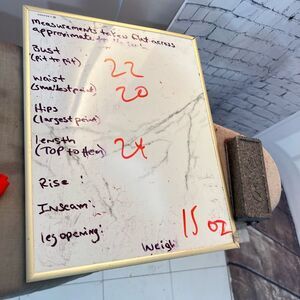 Measurements taken flat across
approximate to the inch
Bust
(Pit to pit) 22
Waist
(smallest point) 20
Hips
(largest point)
length
(TOP to Hem) 24
Rise :
Inseam:
leg opening:
Weigh 15 oz